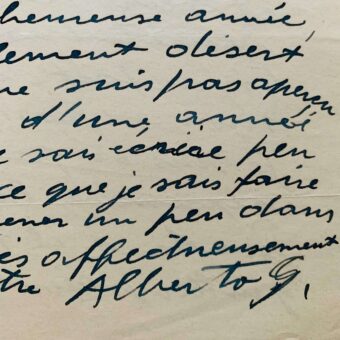 heureuse année,
lement désert
ne suis pas aperçu
d'une année
e sais écrire peu
ce que je sais faire
ener un peu dans
ès affectueusement
tre Alberto G.